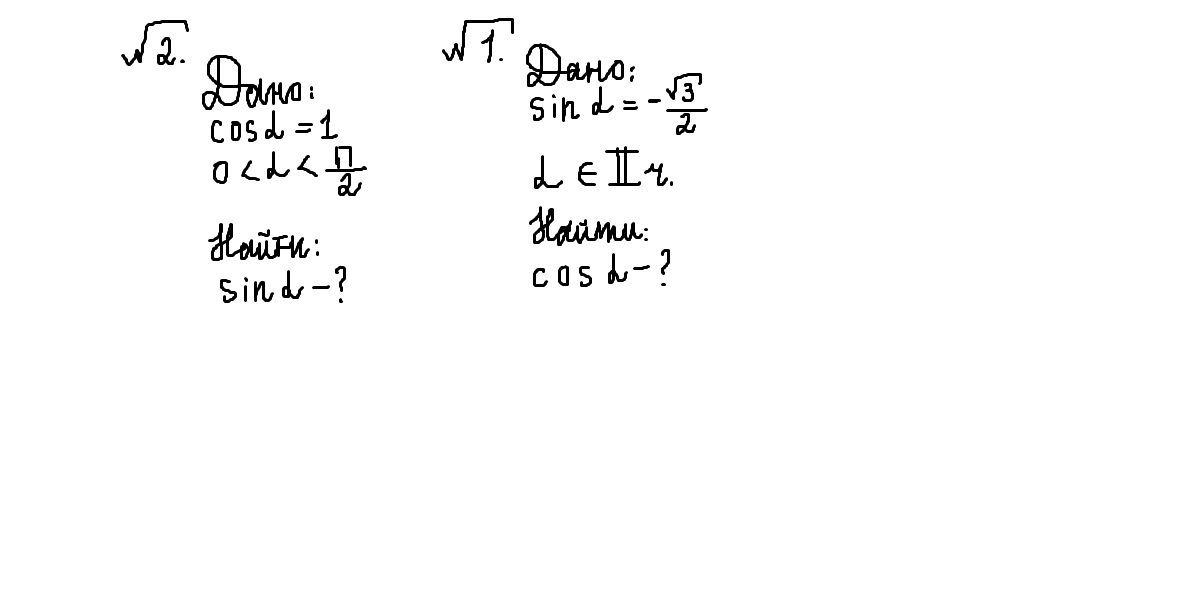 √2.
Дано:
cos α = 1
0 < α < П/2
Найти:
sin α - ?
√1.
Дано:
sin α = -√3/2
α ∈ II ч.
Найти:
cos α - ?